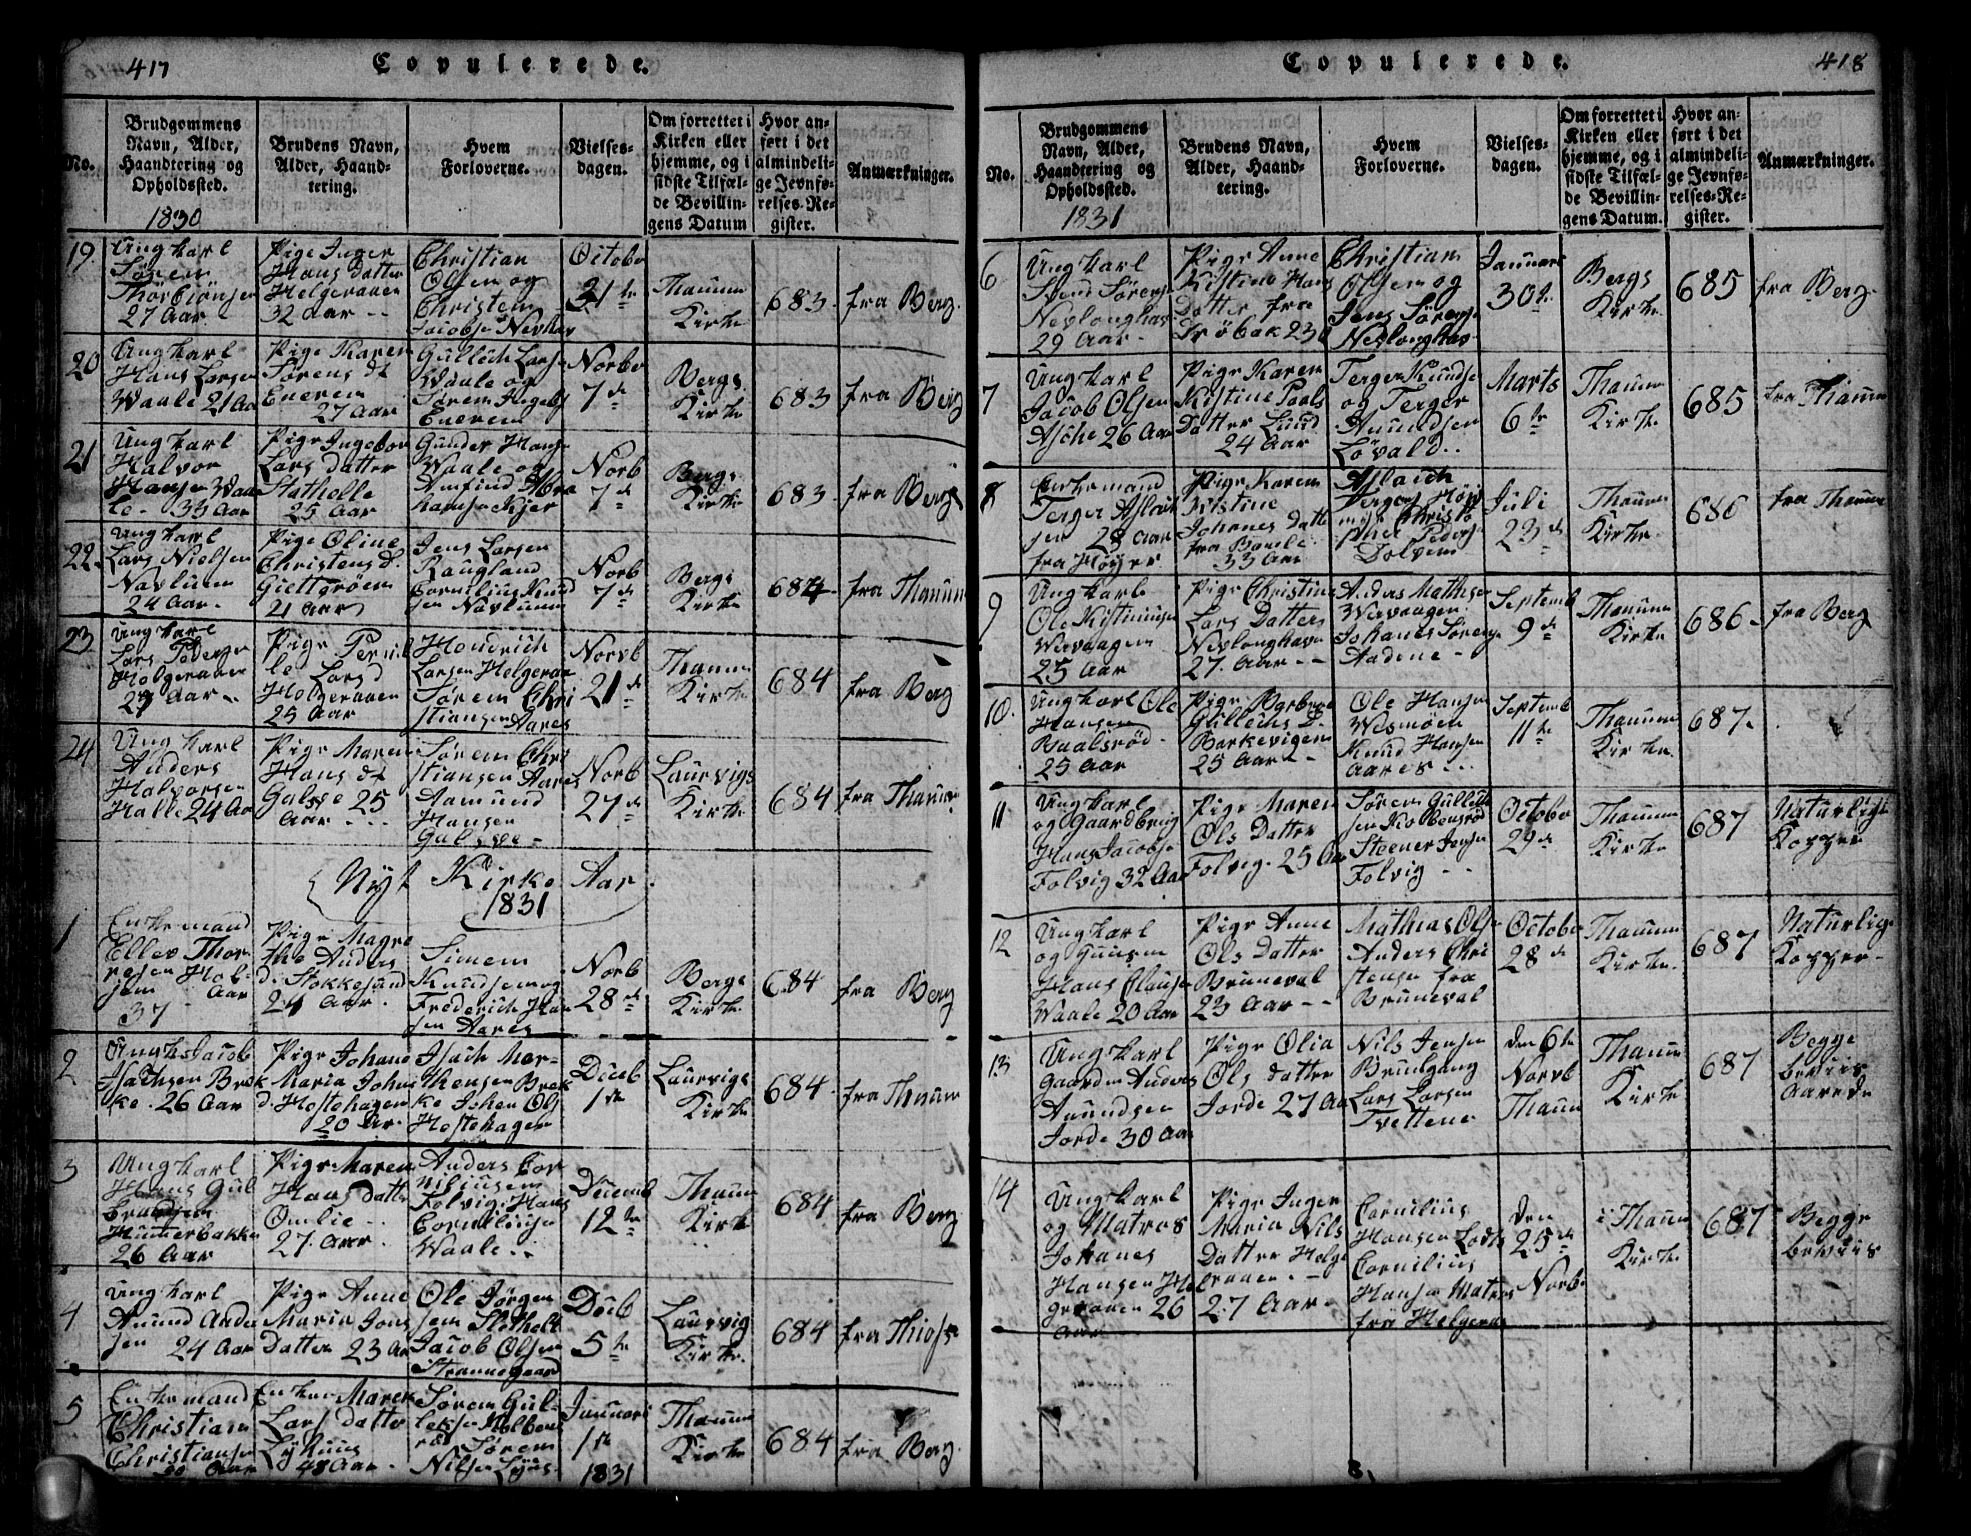 417
Copulerede.
No.
Brudgommens
Navn, Alder,
Haandtering og
Opholdssted.
1830
Brudens Navn,
Alder, Haand-
tering.
Hvem
Forloverne.
Vielses-
dagen.
Om forrettet i
Kirken eller
hjemme, og i
sidste Tilfæl-
de Bevillin-
gens Datum
Hvor an-
ført i det
almindeli-
ge Jevnfø-
relses-Re-
gister.
Anmærkninger.
19
Ungkarl
Sørem
Thorbiönsen
27 Aar
Pige Inger
Hans datter
Helgeraaen
32 aar
Christian
Olsen og
Christen
Jacobs Nevlhav
Octobr
31te
Thaum
Kirke
683
fra Berg
20
Ungkarl
Hans Larsen
Waale 21 Aar
Pige Karen
Sørens dt
Eneren
27 Aar
Gullich Lars
Waale og
Sörem Ingebs
Eneren
Norbr
7de
Bergs
Kirke
683
fra Berg
21
Ungkarl
Halvor
Hansen Waa
le 33 Aar
Pige Ingebor
Lars datter
Stathelle
25 Aar
Gunder Hans
Waale og
Amfind Abra
hamsen Kjær
Norb
7de
Bergs
Kirke
683
fra Berg
22
Ungkarl
Lars Nielsen
Navluen
24 Aar
Pige Oline
Christens d.
Giettrøen
21 Aar
Jens Larsen
Raugland
Cornilius Knud
sen Navluen
Norb
7de
Bergs
Kirke
684
fra Thaum
23
Ungkarl
Lars Peders
Helgeraaen
29 Aar
Pige Pernil
le Lars d
Helgeraaen
25 Aar
Hendrich
Larsen Helgeraa
Sörem Chri
stiansen Aares
Norvb
21de
Thaum
Kirke
684
fra Berg
24
Ungkarl
Anders
Halvorsen
Halle 24 Aar
Pige Maren
Hans dt
Galsøe 25
Aar
Sörem Chri
stiansen Aares
Aamund
Hansen
Galsøe
Norb
27de
Laurvigs
Kirke
684
fra Thaum
Nyt Kirke Aar
1831
1
Enkemand
Ellev Thor
resen Hol-
sem Aar
37
Pige Magre
the Anders
d. Stokkesund
24 Aar
Simem
Knudsen og
Frederich Han
sen Aares
Norb
28de
Bergs
Kirke
684
fra Berg
2
Ungk Jacob
Isachsen Brek
ke 26 Aar
Pige Johane
Maria Johns
d. Hestehagen
20 Aar
Isach Mar-
thensen Brek
ke Johen Ols
Hestehagen
Diceb
1ste
Laurvigs
Kirke
684
fra Thaum
3
Ungkarl
Hans Gul
brandsen
Hummerbakken
26 Aar
Pige Maren
Hans datter
Omlie
27 Aar
Anders Cor
niliusen
Folvig Hans
Corneliusen
Waale
Dicemb
12te
Thaum
Kirke
684
fra Berg
4
Ungkarl
Anund Ander
sen 24 Aar
Pige Anne
Maria Jons
Datter 23 Aar
Ole Jörgen
sem Sletholt
Jacob Olsen
Strannegaard
Diceb
5te
Laurvig
Kirke
684
fra Thiøs
5
Enkemand
Christian
Christiansen
Aar
Enken Maren
Lars datter
Lyhuus
48 Aar
Sörem Gul-
leksen Kolbens
röd Sörem
Nilsen Lyus
Januari
1ste
1831
Thaum
Kirke
684
fra Berg
418
Copulerede.
No.
Brudgommens
Navn, Alder,
Haandtering og
Opholdssted.
1831
Brudens Navn,
Alder, Haand-
tering.
Hvem
Forloverne.
Vielses-
dagen.
Om forrettet i
Kirken eller
hjemme, og i
sidste Tilfæl-
de Bevillin-
gens Datum.
Hvor an-
ført i det
almindeli-
ge Jevnfø-
relses-Re-
gister.
Anmærkninger.
6
Ungkarl
Svend Sørens
Nevlonghav
29 Aar
Pige Anne
Kistine Hans
Datter fra
Dröbak 23
Christian
Olsen og
Jens Sörens
Nevlonghav
Januari
30te
Bergs
Kirke
685
fra Berg
7
Ungkarl
Jacob Olsen
Asche 26 Aar
Pige Karen
Kistine Pouls
Datter Lund
24 Aar
Terger Knuds
og Terger
Anundsen
Lövald
Marts
6te
Thaum
Kirke
685
fra Thaum
8
Enkemand
Terger Aslach
sen 28 Aar
fra Høyer
Pige Karen
Kistine
Johanes Datt
fra Bamle
33 Aar
Aslach
Tergers Höy
Christo
pher Peders
Dolven
Juli
23de
Thaum
Kirke
686
fra Thaum
9
Ungkarl
Ole Kistiansen
Wevaagen
25 Aar
Pige Christin
Lars Datter
Nevlonghavn
27 Aar
Anders Mathisen
Wevaagen
Johanes Sörens
Aadene
Septemb
9de
Thaum
Kirke
686
fra Berg
10
Ungkarl Ole
Hansen
Baalsröd
25 Aar
Pige Barbroe
Gullichs d.
Barkevigen
25 Aar
Ole Hansen
Wesmöen
Knud Hansen
Aares
Septemb
11te
Thaum
Kirke
687
11
Ungkarl
og Gaardbrug
Hans Jacobs
Folvig 32 Aar
Pige Maren
Ols Datter
Folvig 25 Aar
Sörem Gullich
sen Kolbensröd
Steener Jensen
Folvig
Octobr
29de
Thaum
Kirke
687
Naturlige
Kopper
12
Ungkarl
og Huusm
Hans Clausen
Waale 20 Aar
Pige Anne
Ols Datter
Bruneval
23 Aar
Mathias Ols
Anders Chri
stensen fra
Bruneval
Octobr
28de
Thaum
Kirke
687
Naturlige
Kopper
13
Ungkarl
Gaardm Anders
Anundsen
Jorde 30 Aar
Pige Olia
Ols datter
Jorde 27 Aar
Nils Jensen
Brunlgang
Lars Larsen
Tvettene
den 6te
Norvb
Thaum
Thaum
Kirke
687
Begge
beviis
Aarede
14
Ungkarl
og Matros
Johanes
Hansen Hel
geraaen 26
Aar
Pige Inger
Maria Nils
Datter Helge
raaen
27 Aar
Cornilius
Hansen Lods
Cornilius
Hansen Matros
fra Helgeraa
den
25de
Norbr
i Thaum
Kirke
687
Begge
beviis